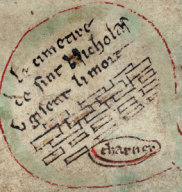 le cimetire
de sint Nicholas
u gisent li mors
charner